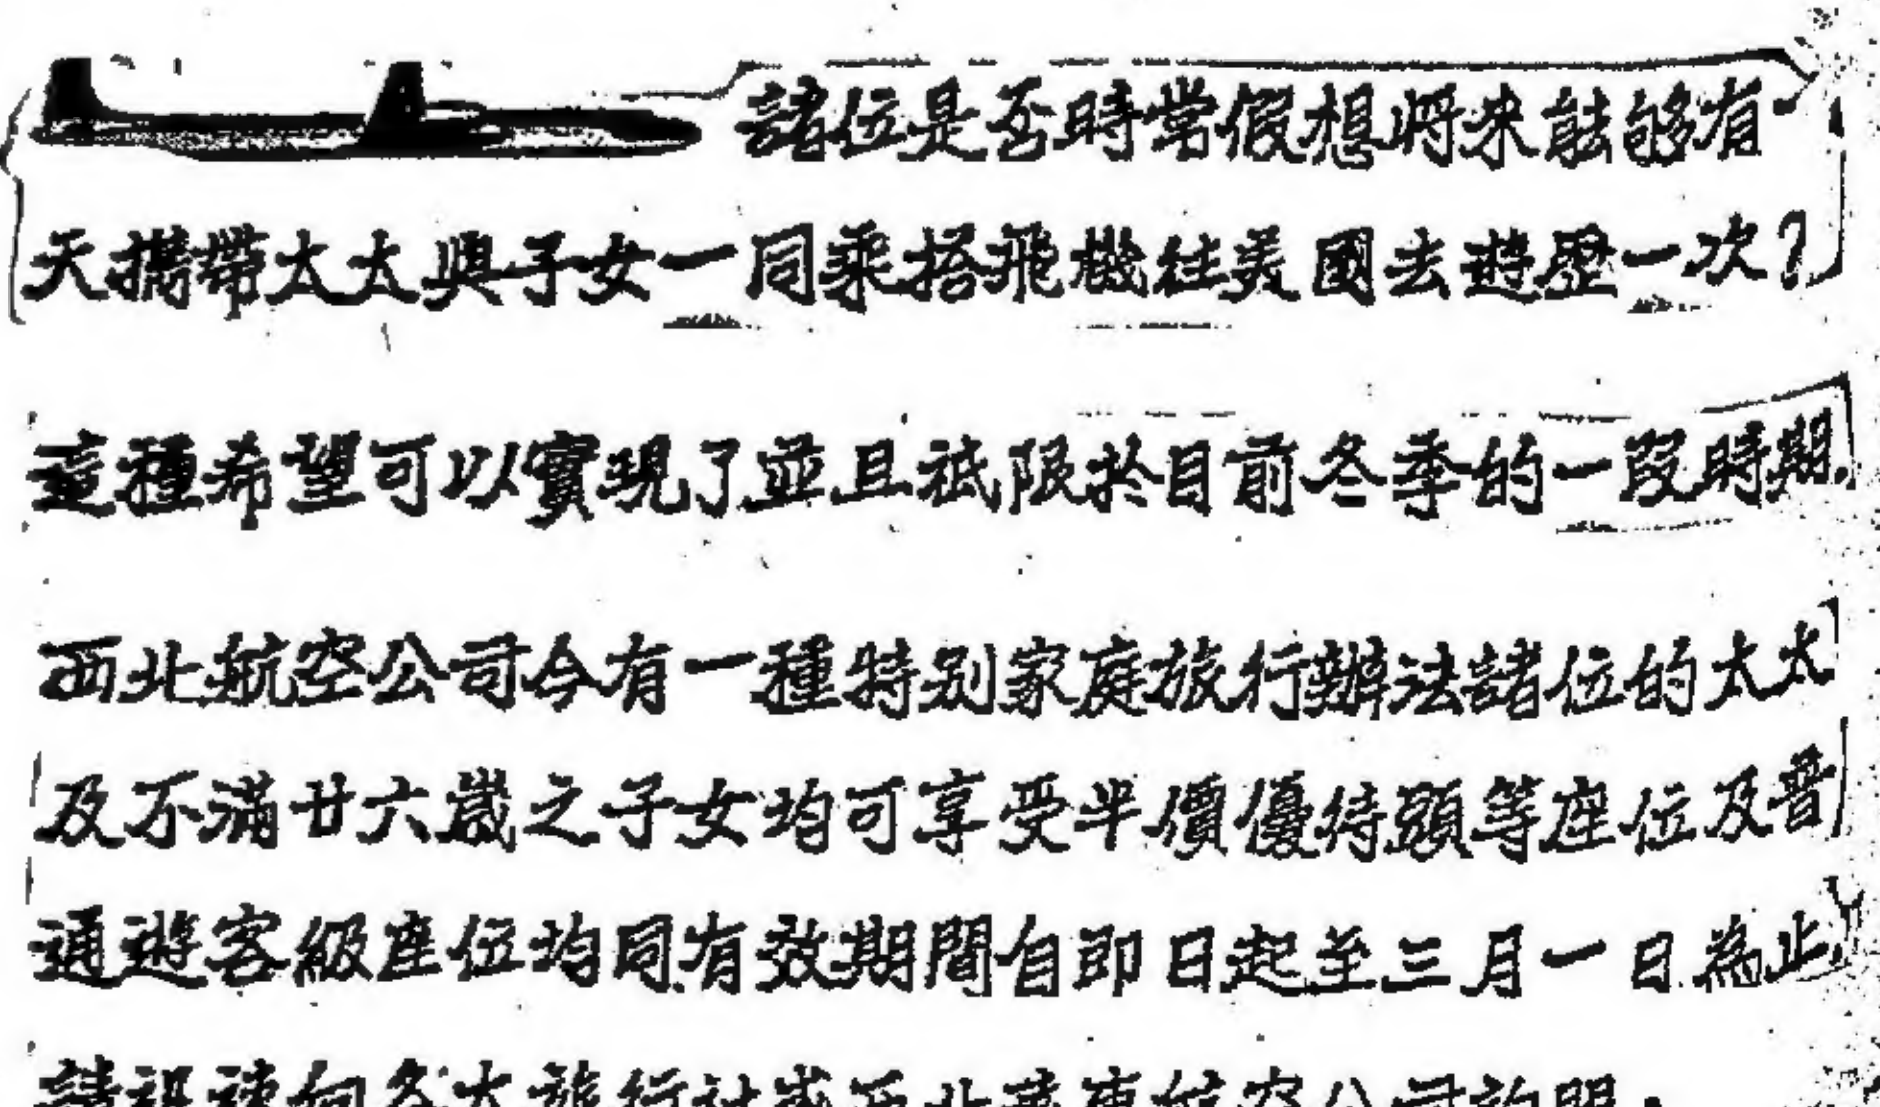 諸位是否時常假想將來能够有
天攜帶太太與子女一同乘搭飛機往美國去遊歷一次?
這種希望可以實現了並且祇限於目前冬季的一段時期.
西北航空公司今有一種特别家庭旅行辦法諸位的太太
及不滿廿六歲之子女均可享受半價優待頭等座位及普
通遊客級座位均同有效期間自即日起至三月一日為止
請設速向各大旅行社或西北 航空公司詢問: